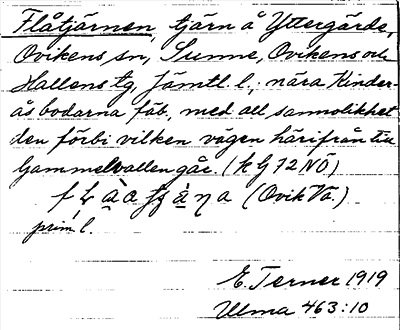 Flåtjärnen, tjärn å Yttergärde,
Ovikens sn, Sunne, Ovikens och
Hallens tg, Jämtl. l.; nära Kinder-
åsbodarna fäb, med all sannolikhet
den förbi vilken vägen härifrån till
Gammelvallen går. (k G 72 NÖ)
(Ovik Va.)
prim l.
E. Terner 1919
Ulma 463:10